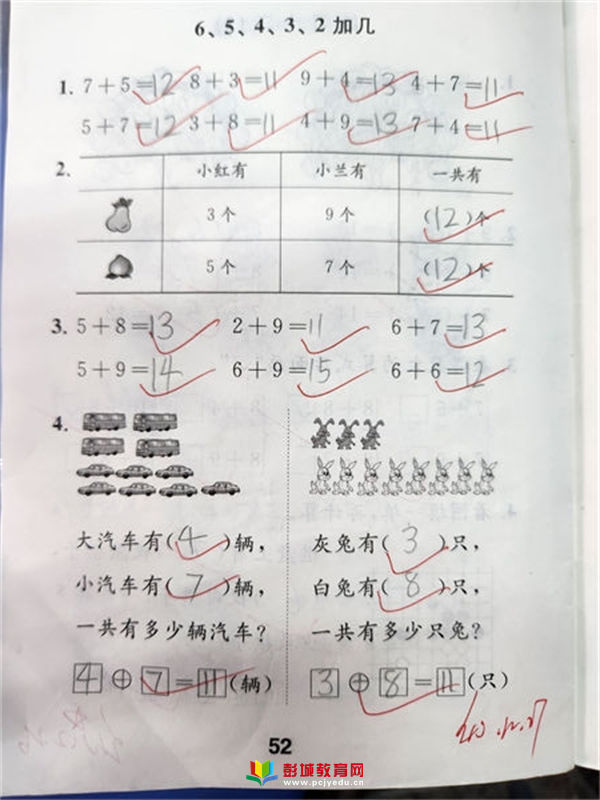 6、5、4、3、2加几
1. 7+5=12 8+3=11 9+4=13 4+7=11
5+7=12 3+8=11 4+9=13 7+4=11
2. 小红有 小兰有 一共有
3个 9个 (12)个
5个 7个 (12)个
3. 5+8=13 2+9=11 6+7=13
5+9=14 6+9=15 6+6=12
4.
大汽车有(4)辆，
小汽车有(7)辆，
一共有多少辆汽车？
4⊕7=11(辆)
灰兔有(3)只，
白兔有(8)只，
一共有多少只兔？
3⊕8=11(只)
52
彭城教育网
www.pcjyedu.cn